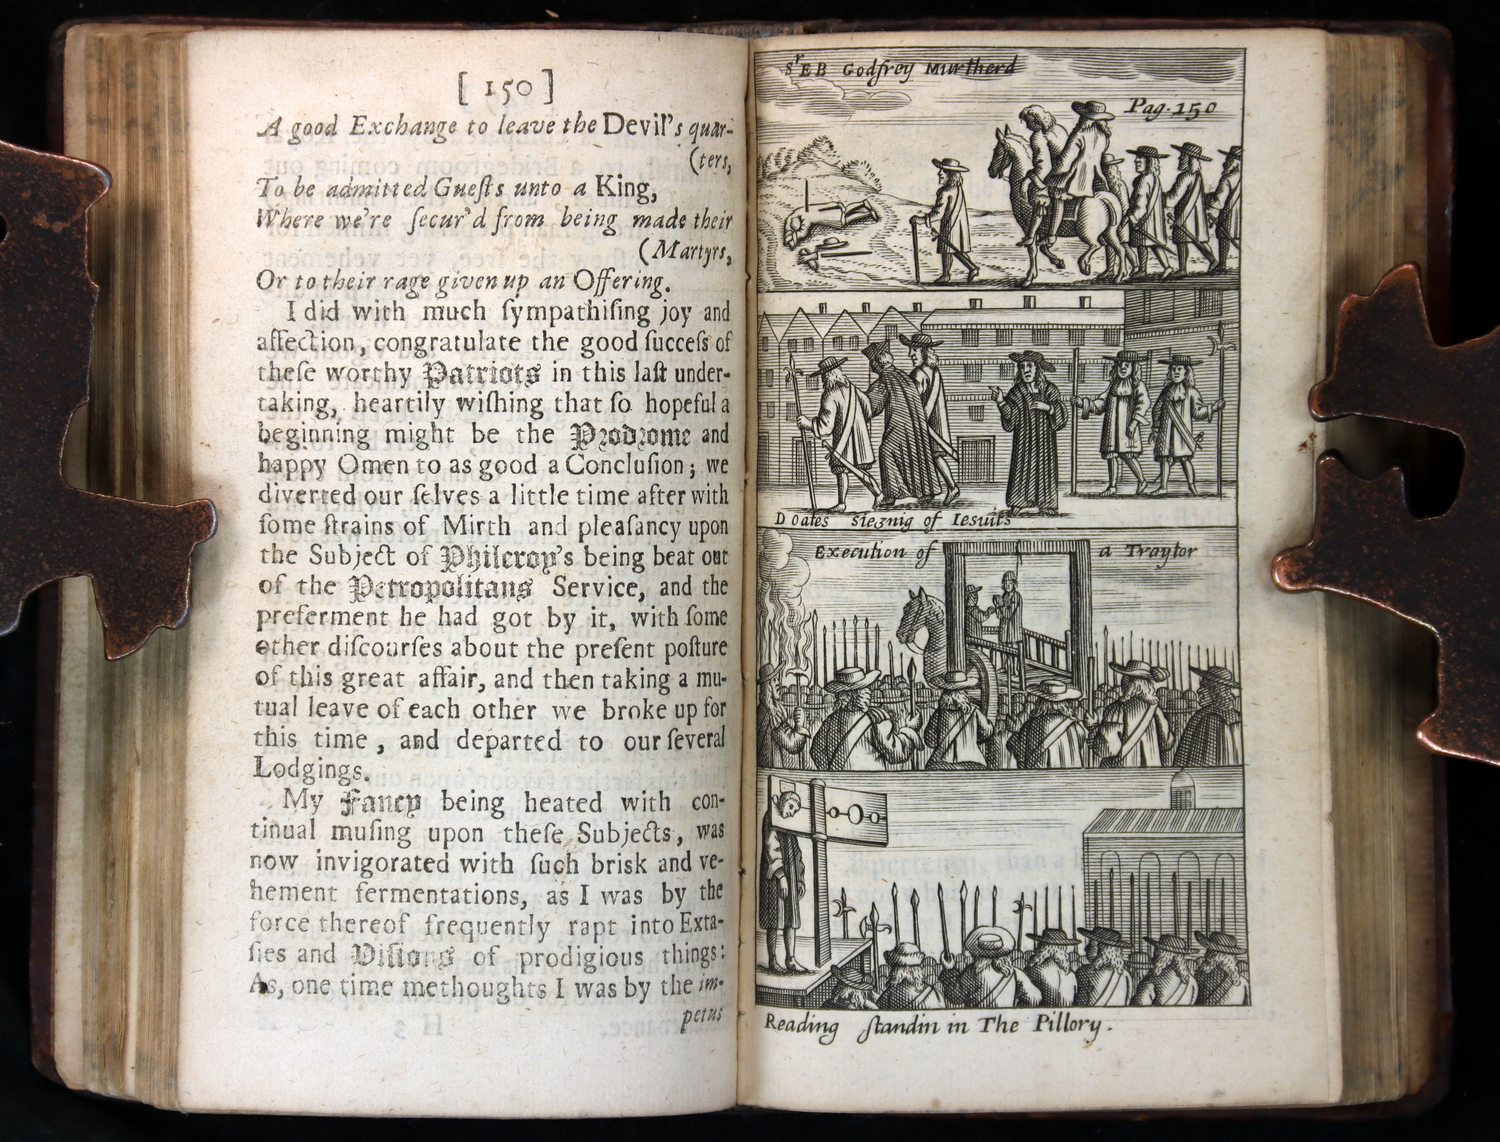 [ 150 ]
A good Exchange to leave the Devil's quar-
(ters,
To be admitted Gueſts unto a King,
Where we're ſecur'd from being made their
(Martyrs,
Or to their rage given up an Offering.
I did with much ſympathiſing joy and
affection, congratulate the good ſucceſs of
theſe worthy Patriots in this laſt under-
taking, heartily wiſhing that ſo hopeful a
beginning might be the Prodrome and
happy Omen to as good a Concluſion; we
diverted our ſelves a little time after with
ſome ſtrains of Mirth and pleaſancy upon
the Subject of Philcroy's being beat out
of the Petropolitans Service, and the
preferment he had got by it, with ſome
other diſcourſes about the preſent poſture
of this great affair, and then taking a mu-
tual leave of each other we broke up for
this time, and departed to our ſeveral
Lodgings.
My Fancy being heated with con-
tinual muſing upon theſe Subjects, was
now invigorated with ſuch brisk and ve-
hement fermentations, as I was by the
force thereof frequently rapt into Exta-
ſies and Viſions of prodigious things:
As, one time methoughts I was by the im-
petus
Sr E B Godfrey Murtherd
Pag. 150
D Oates Sieznig of Iesuits
Execution of a Traytor
Reading ſtandin in The Pillory.